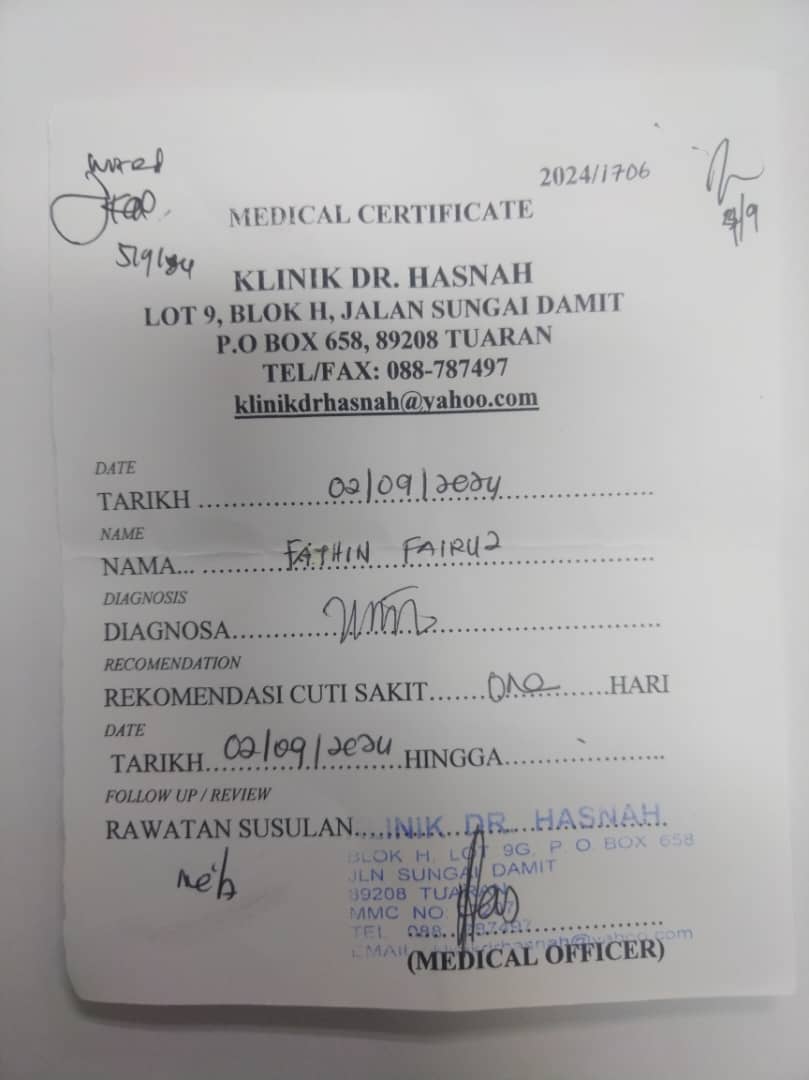 5/9/24
2024/1706
MEDICAL CERTIFICATE
KLINIK DR. HASNAH
LOT 9, BLOK H, JALAN SUNGAI DAMIT
P.O BOX 658, 89208 TUARAN
TEL/FAX: 088-787497
klinikdrhasnah@yahoo.com
DATE
TARIKH ........ 02/09/2024 ........
NAME
NAMA... ........ FATHIN FAIRUZ ........
DIAGNOSIS
DIAGNOSA........
RECOMENDATION
REKOMENDASI CUTI SAKIT....... One .......HARI
DATE
TARIKH.. 02/09/2024 ..HINGGA........ - ........
FOLLOW UP / REVIEW
RAWATAN SUSULAN........
KLINIK DR. HASNAH
BLOK H, LOT 9G, P O BOX 658
JLN SUNGAI DAMIT
89208 TUARAN
MMC NO
TEL 088 787497
EMAIL klinikdrhasnah@yahoo.com
(MEDICAL OFFICER)